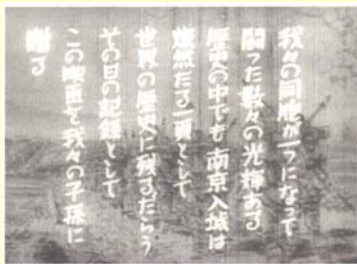 我々の同胞が一つになって
闘った数々の光輝ある
歴史の中でも南京入城は
燦然たる一頁として
世界の歴史に残るだらう
その日の記録として
この映画を我々の子孫に
贈る